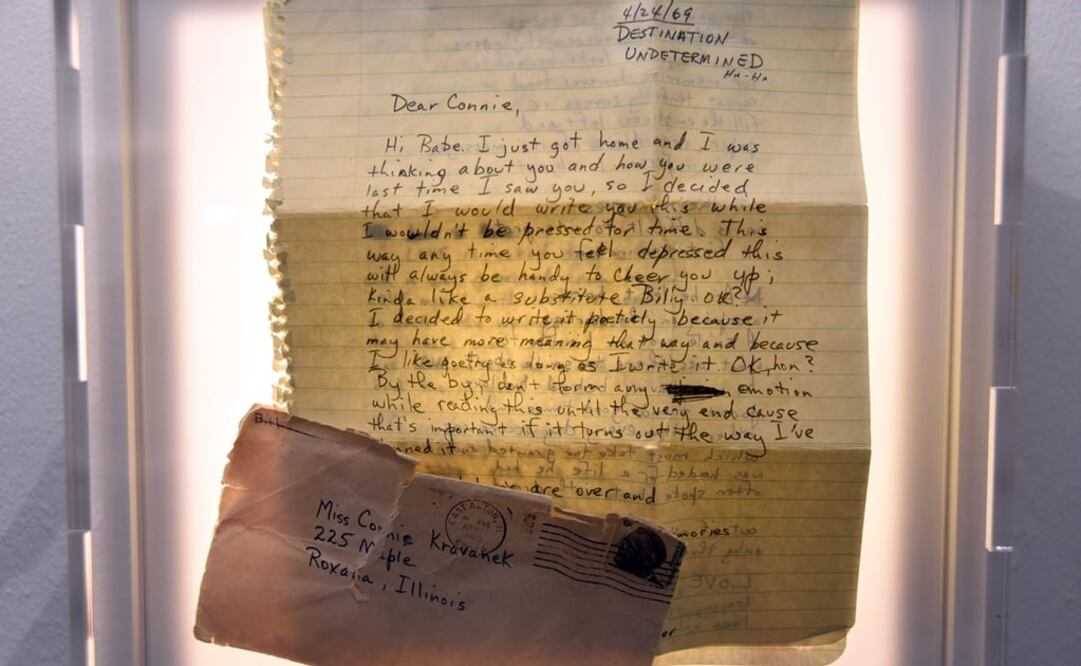 4/24/69
DESTINATION
UNDETERMINED
Ha-Ha
Dear Connie,
Hi Babe. I just got home and I was
thinking about you and how you were
last time I saw you, so I decided
that I would write you this while
I wouldn't be pressed for time. This
way any time you feel depressed this
will always be handy to cheer you up;
Kinda like a substitute Billy OK?
I decided to write it poeticly because it
may have more meaning that way and because
I like poetry as long as I write it OK, hon?
By the by, don't form any emotion
while reading this until the very end cause
that's important if it turns out the way I've
it
are over and
mories
er
Bill
Miss Connie Kravanek
225 Maple
Roxana, Illinois
EAST ALTON, IL